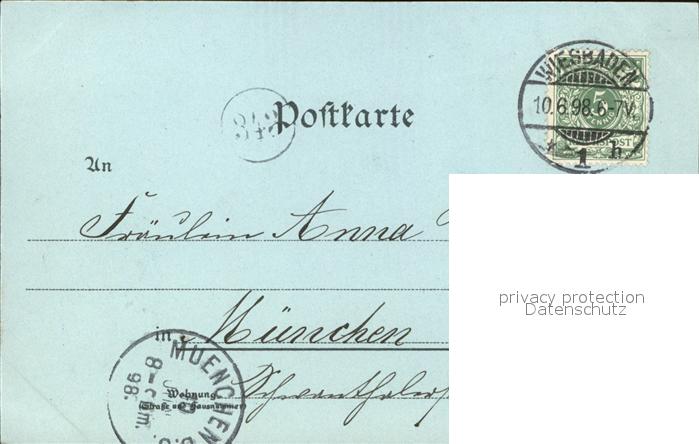 WIESBADEN
10.6.98.6-7V.
1 h
5
342
Postkarte
An
Fräulein Anna
privacy protection
Datenschutz
in München
MUENCHEN
8-9
98.
Wohnung
(Straße und Hausnummer)